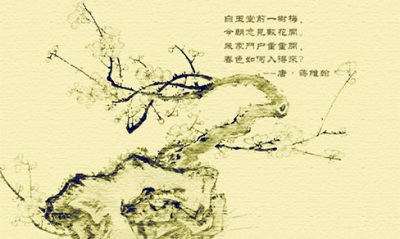 白玉堂前一樹梅,
今朝忽見數花開。
幾家門戶重重閉,
春色如何入得來?
——唐·蔣維翰